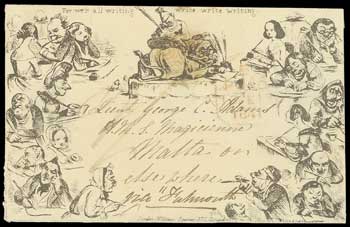 For we're all writing write write writing
Lieut George C. Adams
H.M.S. Magicienne
Malta or
elsewhere
via "Falmouth"